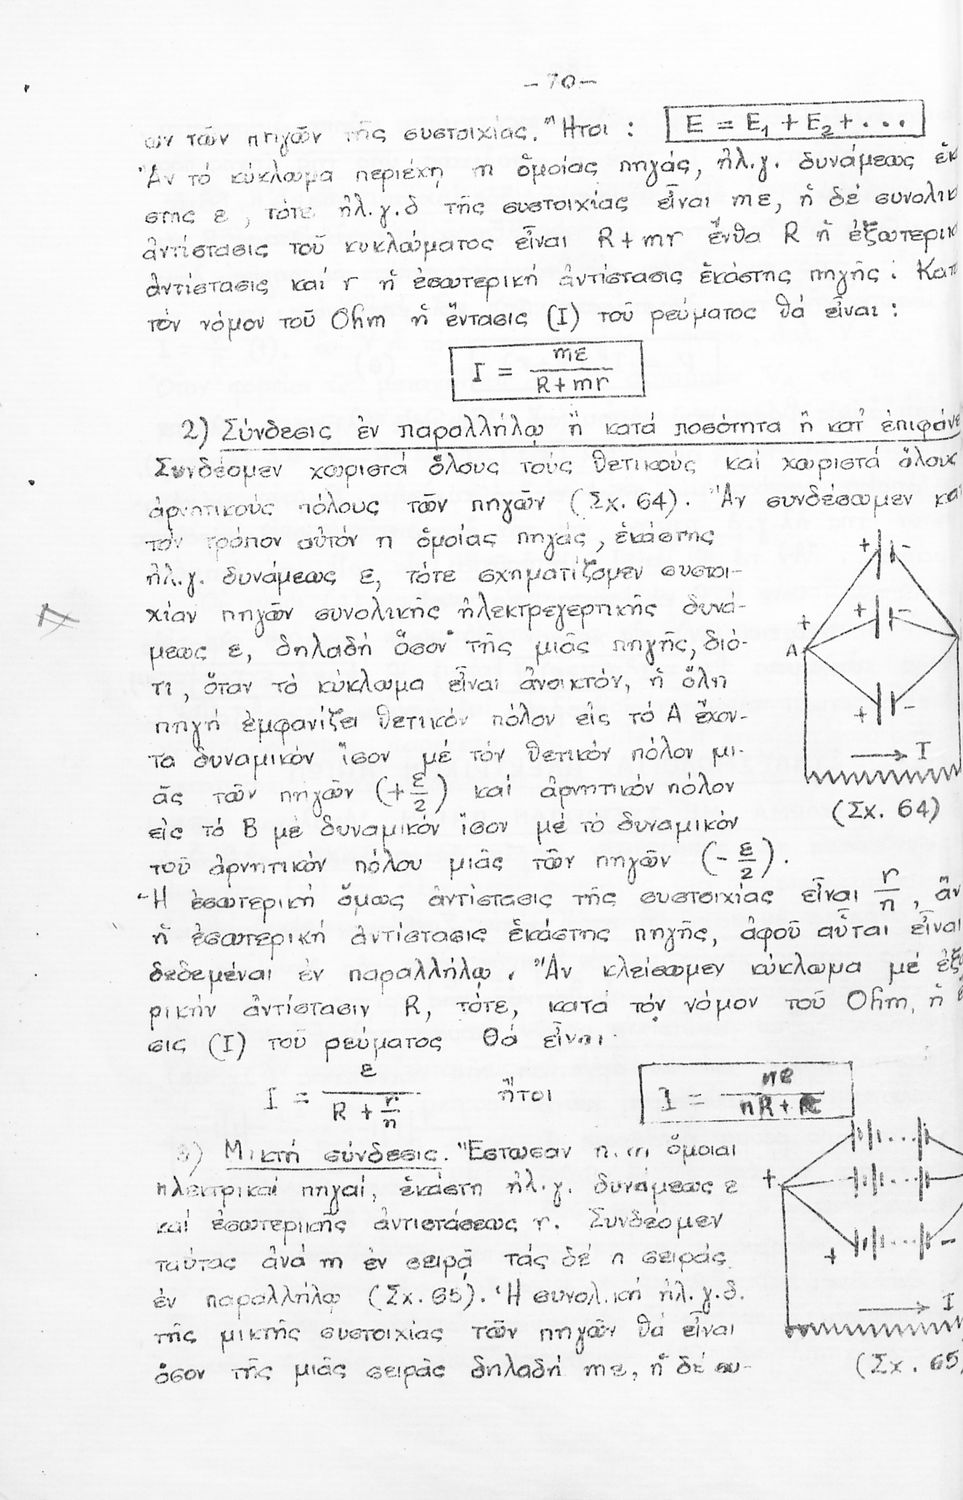 - 70 -
ων τῶν πηγῶν τῆς συστοιχίας. Ἤτοι : E = E₁ + E₂ + ...
Ἄν τό κύκλωμα περιέχῃ m ὅμοίας πηγάς, ἠλ.γ. δυνάμεως ἑκ
στης ε, τότε ἠλ.γ.δ τῆς συστοιχίας εἶναι mε, ἡ δέ συνολικ
ἀντίστασις τοῦ κυκλώματος εἶναι R+mr ἔνθα R ἡ ἐξωτερικ
ἀντίστασις καί r ἡ ἐσωτερική ἀντίστασις ἑκάστης πηγῆς. Κατ
τόν νόμον τοῦ Ohm ἡ ἔντασις (I) τοῦ ρεύματος θά εἶναι :
I = mε / R+mr
2) Σύνδεσις ἐν παραλλήλῳ ἤ κατά ποσότητα ἤ κατ' ἐπιφάνε
Συνδέομεν χωριστά ὅλους τούς θετικούς καί χωριστά ὅλους
ἀρνητικούς πόλους τῶν πηγῶν (Σχ. 64). Ἄν συνδέσωμεν κα
τόν τρόπον αὐτόν n ὁμοίας πηγάς, ἑκάστης
ἠλ.γ. δυνάμεως ε, τότε σχηματίζομεν συστοι-
χίαν πηγῶν συνολικῆς ἠλεκτρεγερτικῆς δυνά-
μεως ε, δηλαδή ὅσον τῆς μιᾶς πηγῆς, διό-
τι, ὅταν τό κύκλωμα εἶναι ἀνοικτόν, ἡ ὅλη
πηγή ἐμφανίζει θετικόν πόλον εἰς τό Α ἔχον-
τα δυναμικόν ἴσον μέ τόν θετικόν πόλον μι-
ᾶς τῶν πηγῶν (+ε/2) καί ἀρνητικόν πόλον
εἰς τό Β μέ δυναμικόν ἴσον μέ τό δυναμικόν
τοῦ ἀρνητικόν πόλου μιᾶς τῶν πηγῶν (-ε/2).
+ -
+ -
+
A
+
I
(Σχ. 64)
Ἡ ἐσωτερική ὅμως ἀντίστασις τῆς συστοιχίας εἶναι r/n, ἄν
ἡ ἐσωτερική ἀντίστασις ἑκάστης πηγῆς, ἀφοῦ αὗται εἶναι
δεδεμέναι ἐν παραλλήλῳ. Ἄν κλείσωμεν κύκλωμα μέ ἐξω
ρικήν ἀντίστασιν R, τότε, κατά τόν νόμον τοῦ Ohm, ἡ
σις (I) τοῦ ρεύματος θά εἶναι
I = ε / R + r/n ἤτοι I = nε / nR + r
3) Μικτή σύνδεσις. Ἔστωσαν n.m ὅμοιαι
ἠλεκτρικαί πηγαί, ἑκάστη ἠλ.γ. δυνάμεως ε
καί ἐσωτερικῆς ἀντιστάσεως r. Συνδέομεν
ταύτας ἀνά m ἐν σειρᾷ τάς δέ n σειράς
ἐν παραλλήλῳ (Σχ. 65). Ἡ συνολική ἠλ.γ.δ.
τῆς μικτῆς συστοιχίας τῶν πηγῶν θά εἶναι
ὅσον τῆς μιᾶς σειρᾶς δηλαδή mε, ἡ δέ συ-
+
+ -
I
(Σχ. 65)